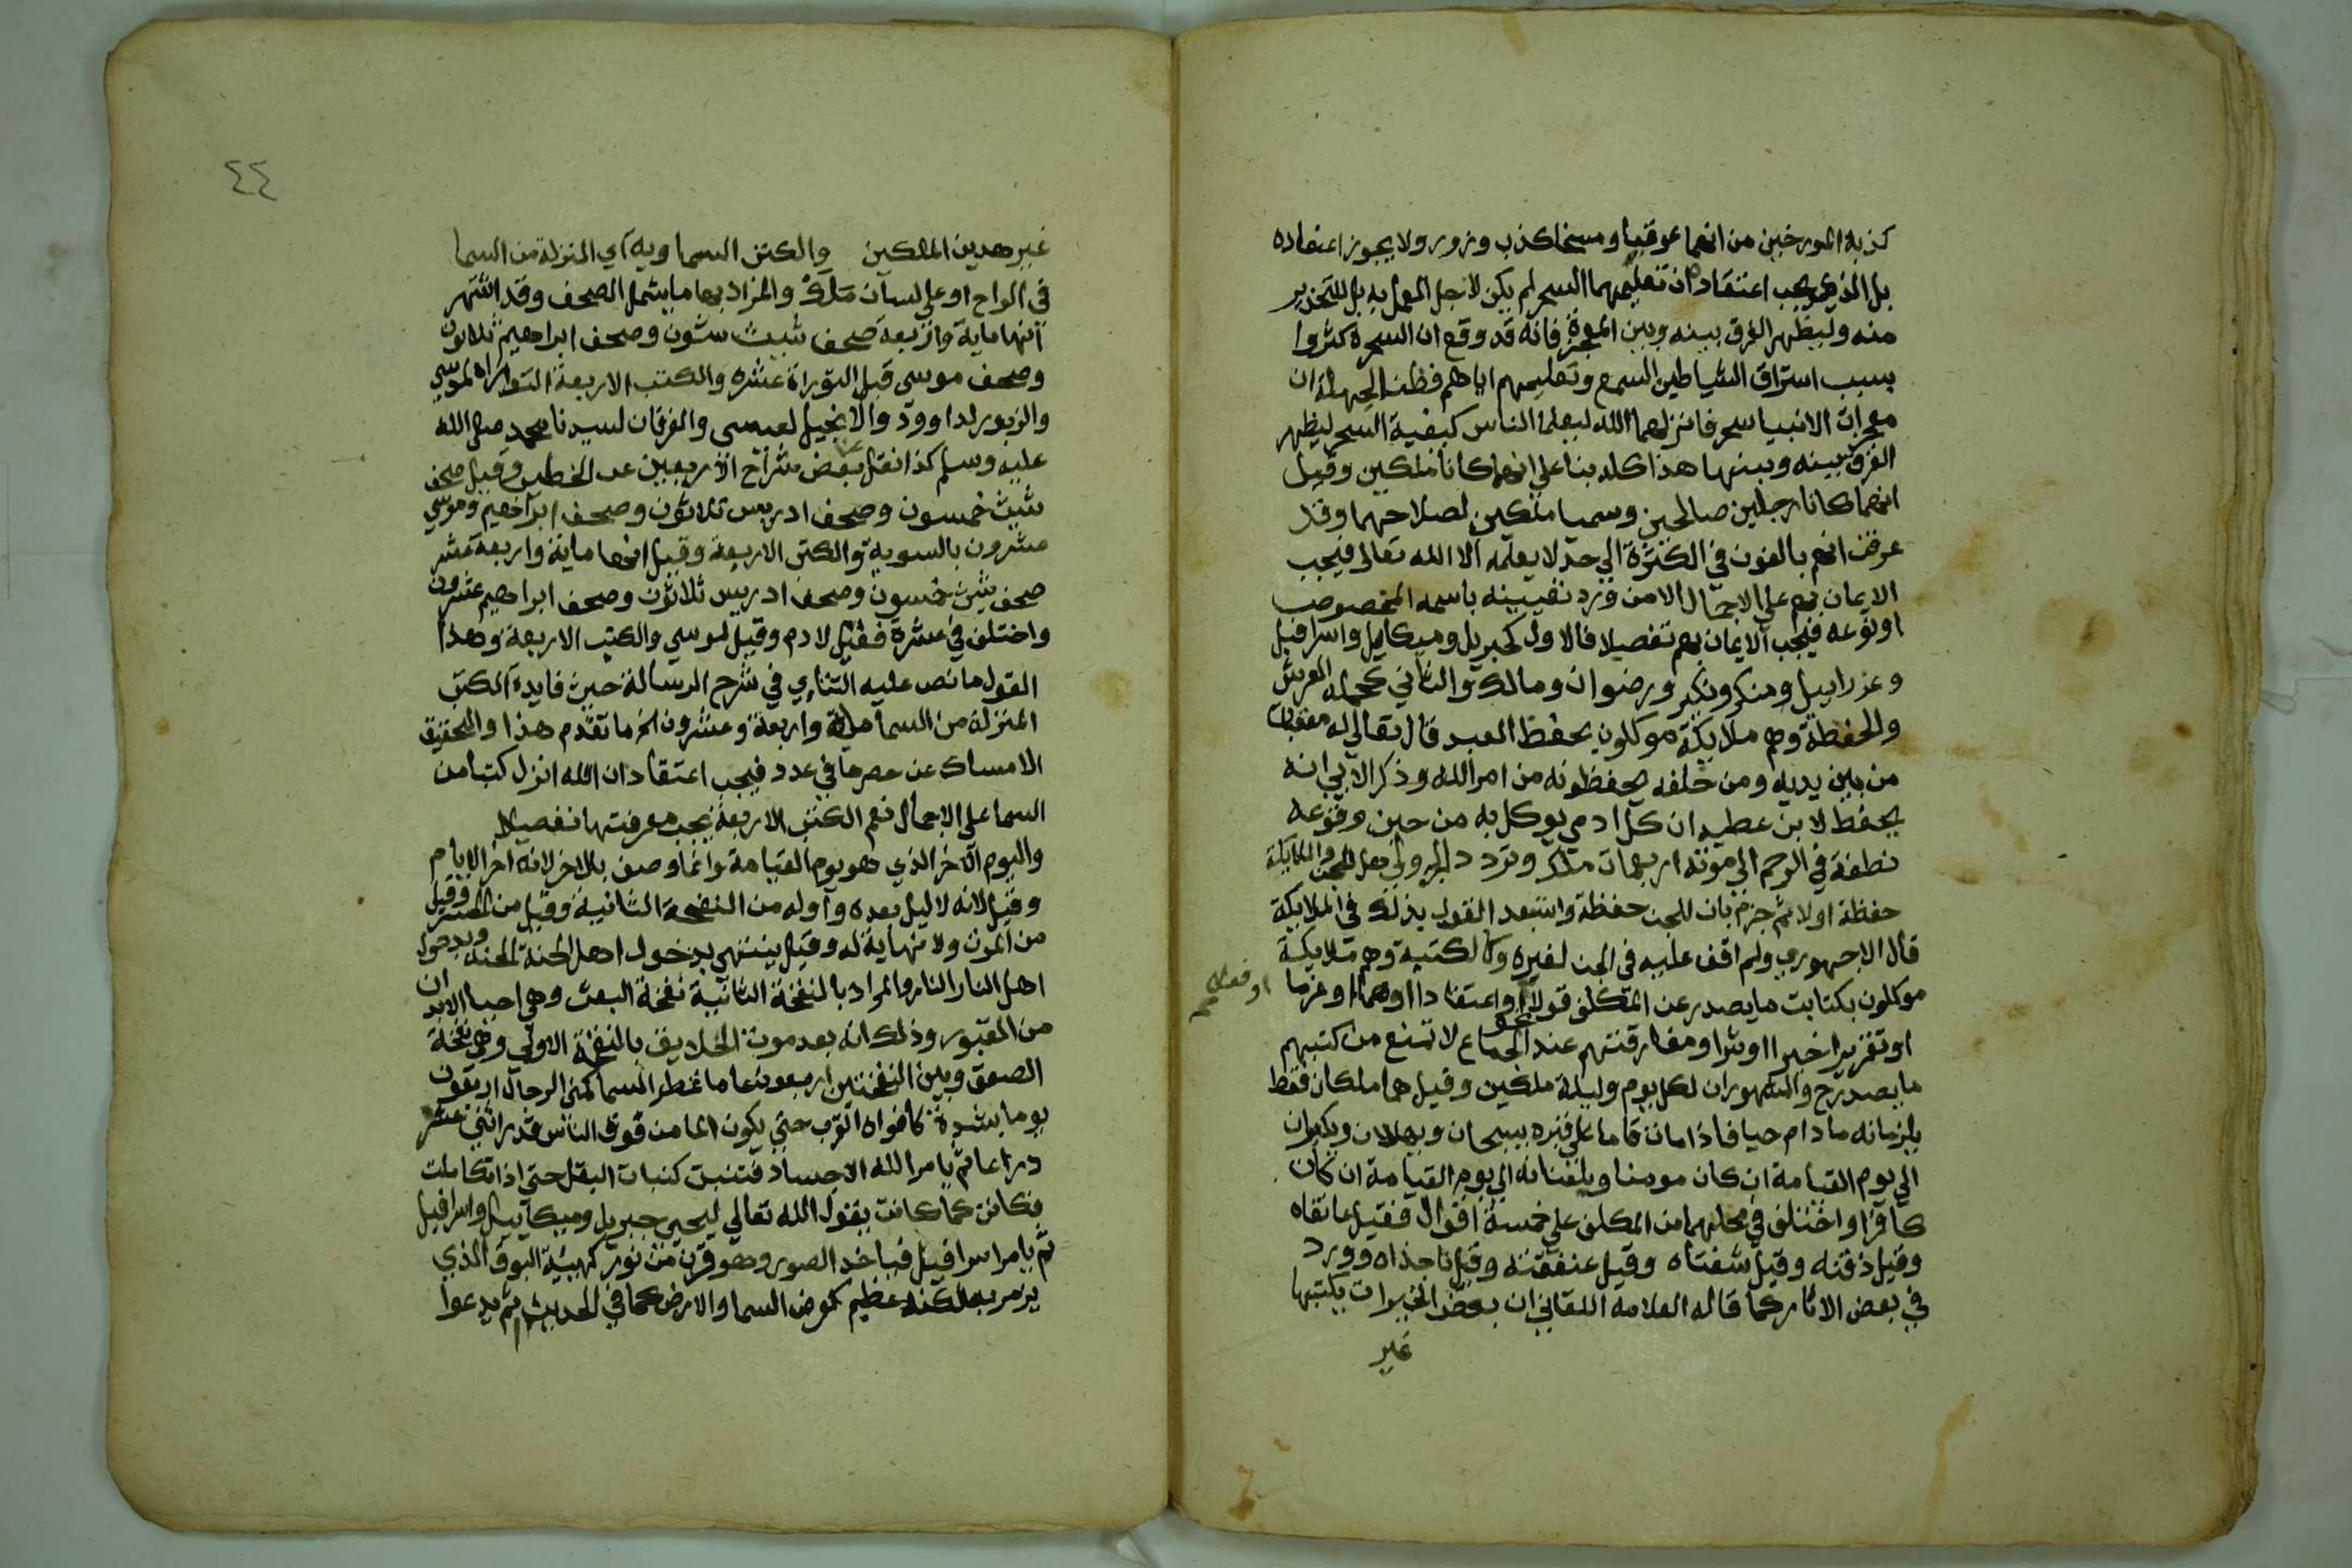 كذبة المورخين من انهما عوقبا ومسخا كذب وزور ولا يجوز اعتقاده
بل الذي يجب اعتقاده ان تعليمهما السحر لم يكن لاجل العمل به بل للتحذير
منه وليظهر الفرق بينه وبين المعجزة فانه قد وقع ان السحرة كثروا
بسبب استراق الشياطين السمع وتعليمهم اياهم فظن الجهلة ان
معجزات الانبيا سحر فانزلهما الله ليعلما الناس كيفية السحر ليظهر
الفرق بينه وبينها هذا كله بنا علي انهما كانا ملكين وقيل
انهما كانا رجلين صالحين وسميا ملكين لصلاحهما وقد
عرفت انهم بالغون في الكثرة الي حد لا يعلمه الا الله تعالى فيجب
الايمان بهم علي الاجمال الا من ورد تعيينه باسمه المخصوص
او نوعه فيجب الايمان بهم تفصيلا فالاول كجبريل وميكاييل واسرافيل
وعزراييل ومنكر ونكير ورضوان ومالك والثاني كحملة العرش
والحفظة وهم ملايكة موكلون بحفظ العبد قال تعالي له معقبات
من بين يديه ومن خلفه يحفظونه من امر الله وذكر الابي انه
يحفظ لابن عطية ان كل ادمي يوكل به من حين وقوعه
نطفة في الرحم الي موته اربعماية ملك وتردد الجزولي هل للجن والملايكة
حفظة اولا ثم جزم بان للجن حفظة واستبعد القول بذلك في الملايكة
قال الاجهوري ولم اقف عليه في الجن لغيره وكالكتبة وهم ملايكة
موكلون بكتابت ما يصدر عن المكلف قولا او اعتقادا او هما او عزما
او فعلا صح
او تقريرا خيرا او شرا ومفارقتهم عند نحو الجماع لا تمنع من كتبهم
ما يصدر ح والمشهور ان لكل يوم وليلة ملكين وقيل هما ملكان فقط
يلزمانه ما دام حيا فاذا مات قاما علي قبره يسبحان ويهللان ويكبران
الي يوم القيامة ان كان مومنا ويلعنانه الي يوم القيامة ان كان
كافرا واختلف في محلهما من المكلف علي خمسة اقوال فقيل عاتقاه
وقيل ذقنه وقيل شفتاه وقيل عنفقته وقيل ناجذاه وورد
في بعض الاثار كما قاله العلامه اللقاني ان بعض الخيرات يكتبها
غير
٤٤
غير هدين الملكين والكتب السماويه اي المنزلة من السما
في الواح او علي لسان ملك والمراد بها ما يشمل الصحف وقد اشتهر
انها ماية واربعة صحف شيث ستون وصحف ابراهيم ثلاثون
وصحف موسي قبل التوراة عشره والكتب الاربعة التوراة لموسي
والزبور لداوود والانجيل لعيسى والفرقان لسيدنا محمد صلى الله
عليه وسلم كذا نقل بعض شراح الاربعين عن الخطيب وقيل صحف
شيث خمسون وصحف ادريس ثلاثون وصحف ابراهيم وموسي
عشرون بالسوية والكتب الاربعة وقيل انها ماية واربعة عشر
صحف شيث خمسون وصحف ادريس ثلاثون وصحف ابراهيم عشرون
واختلف في عشرة فقيل لادم وقيل لموسي والكتب الاربعة وهذا
القول ما نص عليه التتاي في شرح الرسالة حيث فايدة الكتب
المنزلة من السما ماية واربعة وعشرون الخ ما تقدم هذا والتحقيق
الامساك عن حصرها في عدد فيجب اعتقاد ان الله انزل كتبا من
السما علي الاجمال نعم الكتب الاربعة يجب معرفتها تفصيلا
واليوم الاخر الذي هو يوم القيامة وانما وصف بالاخر لانه اخر الايام
وقيل لانه لا ليل بعده واوله من النفخة الثانية وقيل من الحشر وقيل
من الموت ولا نهاية له وقيل ينتهي بدخول اهل الجنة الجنة وبدخول
اهل النار النار والمراد بالنفخة الثانية نفخة البعث وهي احيا الابدان
من القبور وذلك انه بعد موت الخلايف بالنفخة الاولي وهي نفخة
الصعق وبين النفختين اربعون عاما تمطر السما كمني الرجال اربعون
يوما بشدة كافواه القرب حتي يكون الما من فوق الناس قدر اثني عشر
دراعا ثم يامر الله الاجساد فتنبت كنبات البقل حتي اذا تكاملت
فكانت كما كانت يقول الله تعالي ليحيى جبريل وميكاييل واسرافيل
ثم يامر اسرافيل فياخد الصور وهو قرن من نور كهيئة البوق الذي
يزمر به لكنه عظيم كعرض السما والارض كما في الحديث ثم يدعوا